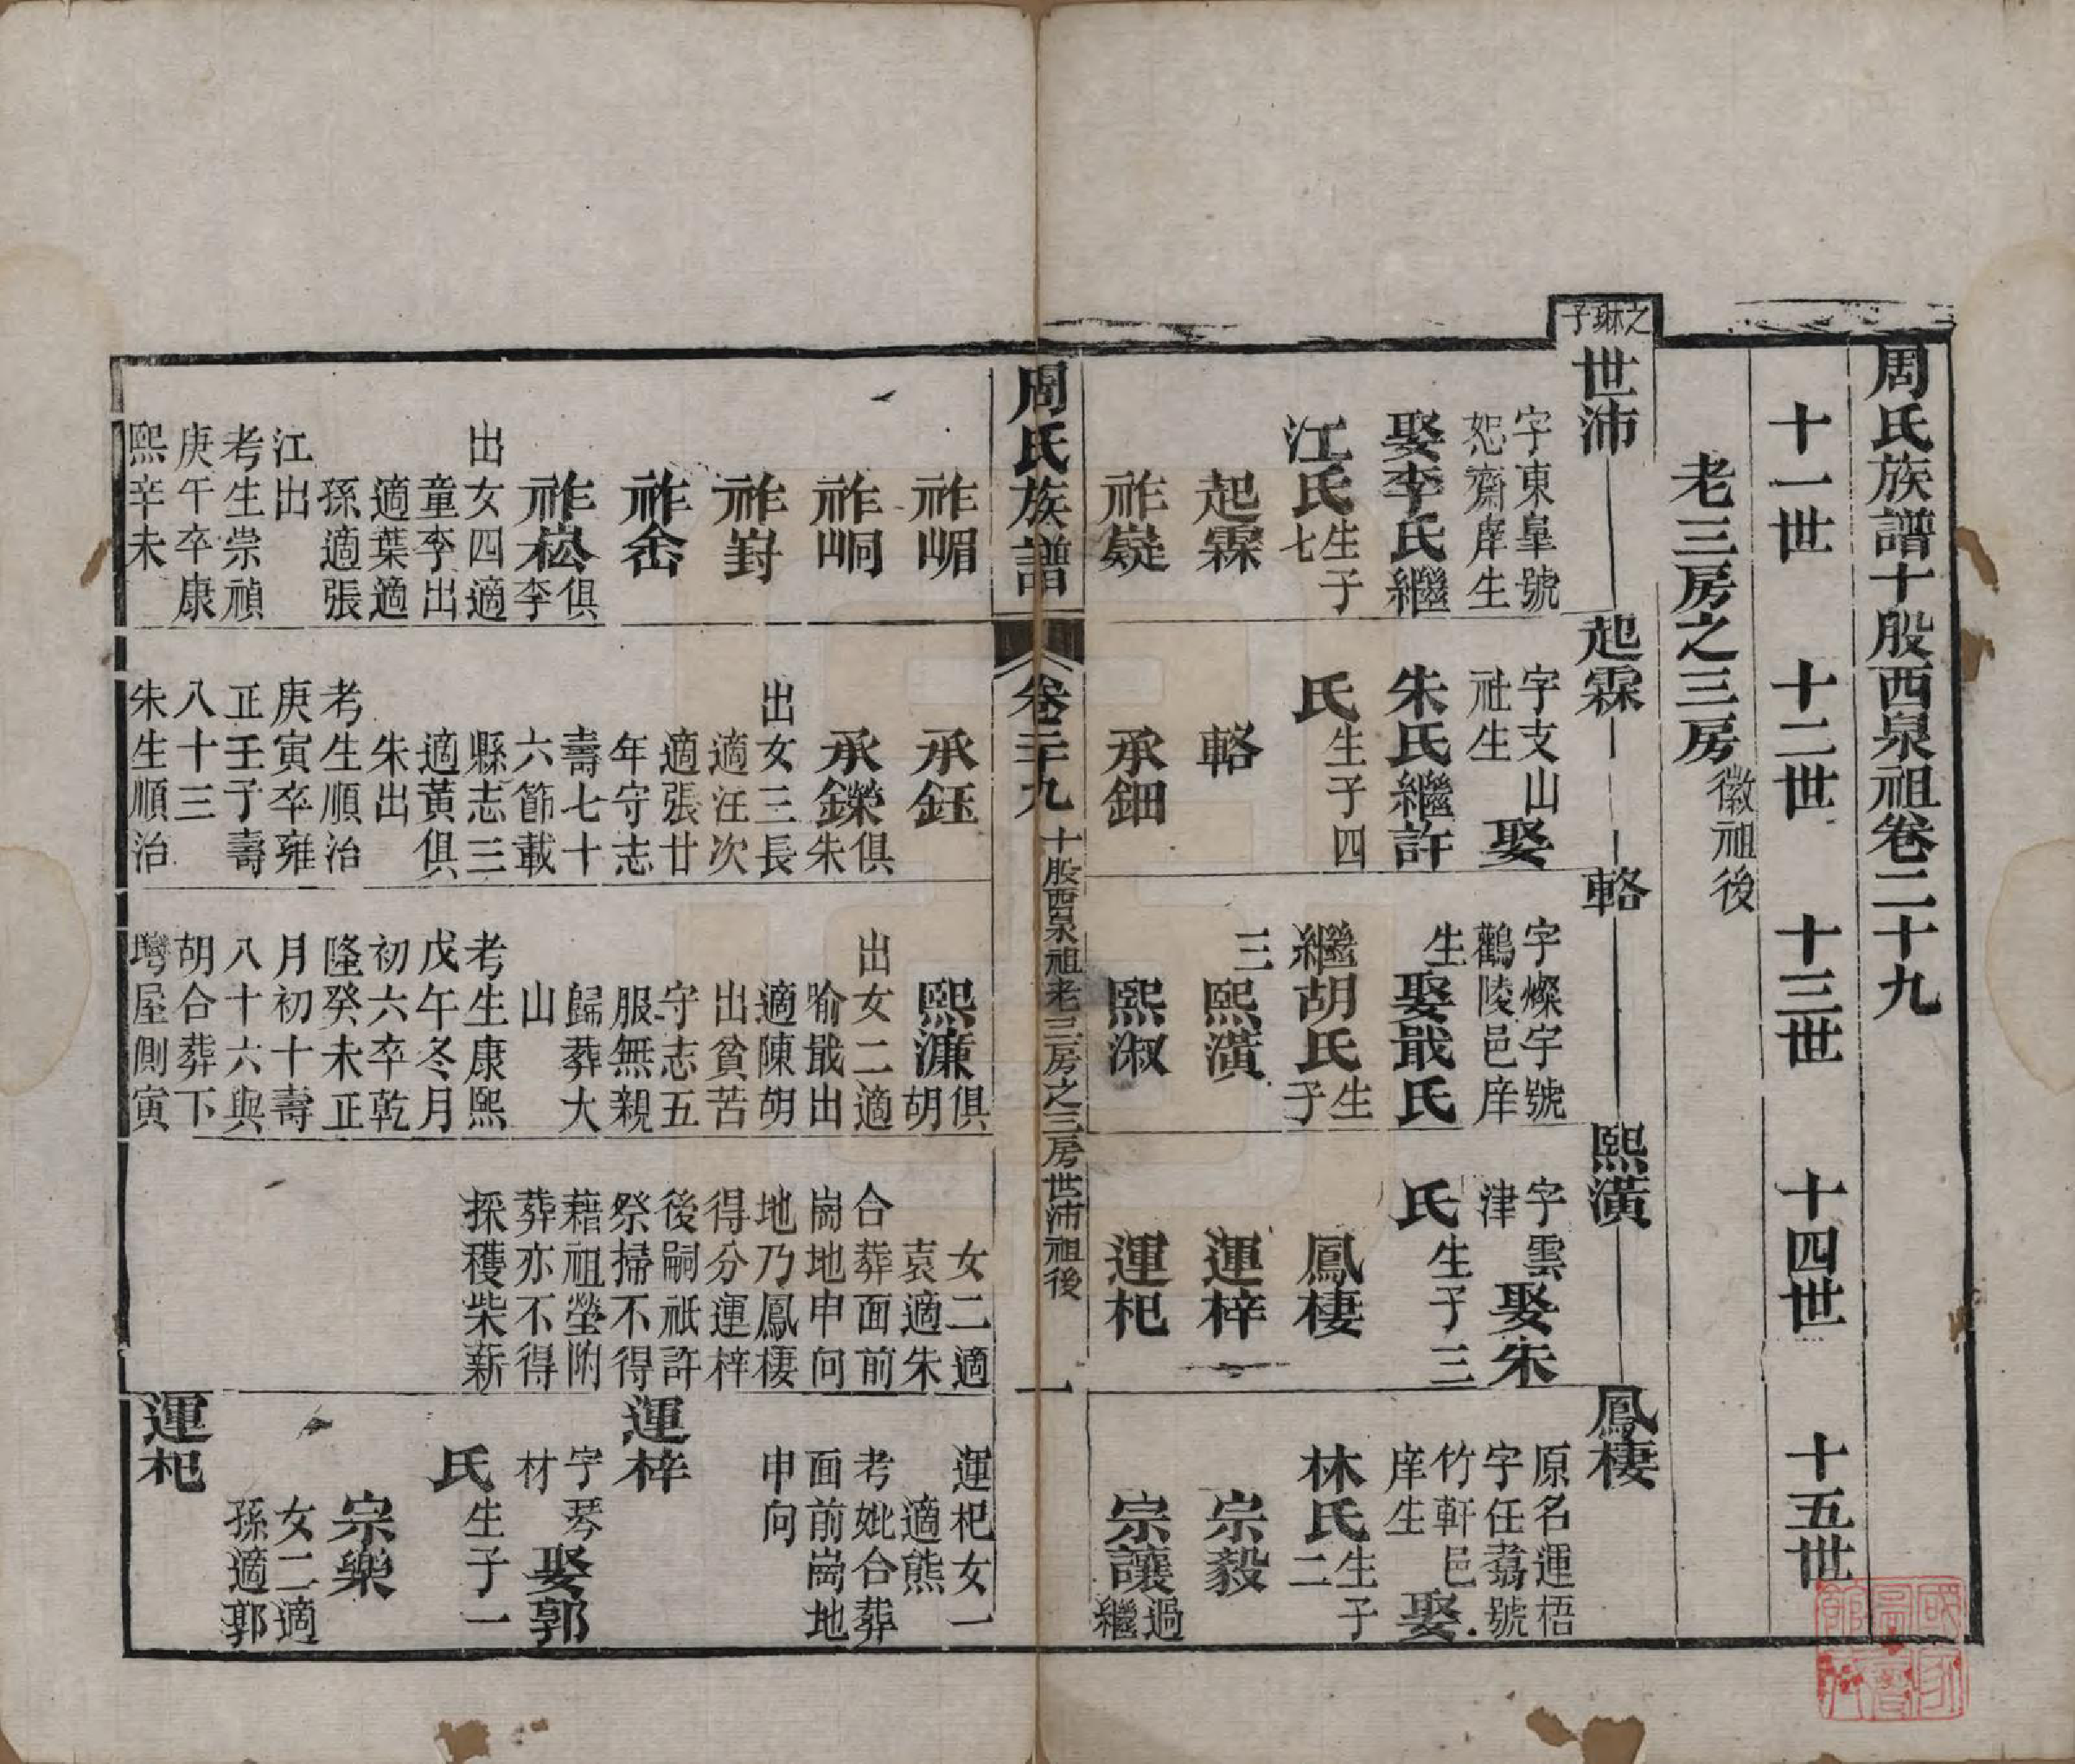 周氏族譜十股西泉祖卷二十九
十一世
十二世
十三世
十四世
十五世
老三房之三房徽祖後
之琳子
世沛
字東皐號
恕齋庠生
娶李氏繼
江氏生子
七
起霖
祚嶷
祚嵋
祚峒
祚崶
祚嵞
祚崧俱
李
出女四適
童李出
適葉適
孫適張
江出
考生崇禎
庚午卒康
熙辛未
起霖
字支山
祉生
娶
朱氏繼許
氏生子四
輅
承鈿
承鈺
承鑅俱
朱
出女三長
適汪次
適張廿
年守志
壽七十
六節載
縣志三
適黃俱
朱出
考生順治
庚寅卒雍
正壬子壽
八十三
朱生順治
輅
字燦宇號
鶴陵邑庠
生娶戢氏
繼胡氏生
子
三
熙潢
熙淑
熙濂俱
胡
出女二適
喻戢出
適陳胡
出貧苦
守志五
服無親
歸葬大
山
考生康熙
戊午冬月
初六卒乾
隆癸未正
月初十壽
八十六與
胡合葬下
塆屋側寅
熙潢
字雲
津
娶朱
氏生子三
鳳棲
運梓
運杞
女二適
袁適朱
合葬面前
崗地申向
地乃鳳棲
得分運梓
後嗣祇許
祭掃不得
藉祖塋附
葬亦不得
採穫柴薪
鳳棲
原名運梧
字任翥號
竹軒邑
庠生娶
林氏生子
二
宗毅
宗讓過
繼
運杞女一
適熊
考妣合葬
面前崗地
申向
運梓
字琴
材
娶郭
氏生子一
宗樂
女二適
孫適郭
運杞
周氏族譜
卷二十九
十股西泉祖老三房之三房世沛祖後
一